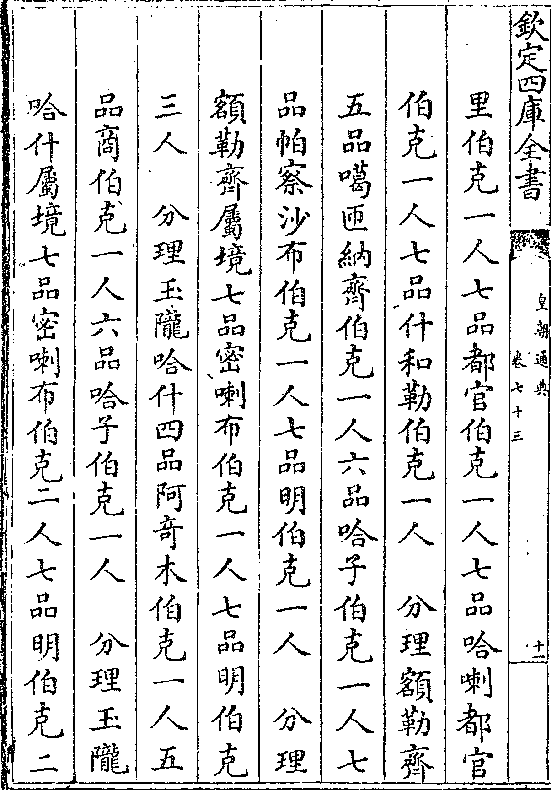 欽定四庫全書
皇朝通典
卷七十三
十一
里伯克一人七品都官伯克一人七品哈喇都官
伯克一人七品什和勒伯克一人　分理額勒齊
五品噶匝納齊伯克一人六品哈子伯克一人七
品帕察沙布伯克一人七品明伯克一人　分理
額勒齊屬境七品密喇布伯克一人七品明伯克
三人　分理玉隴哈什四品阿奇木伯克一人五
品商伯克一人六品哈子伯克一人　分理玉隴
哈什屬境七品密喇布伯克二人七品明伯克二